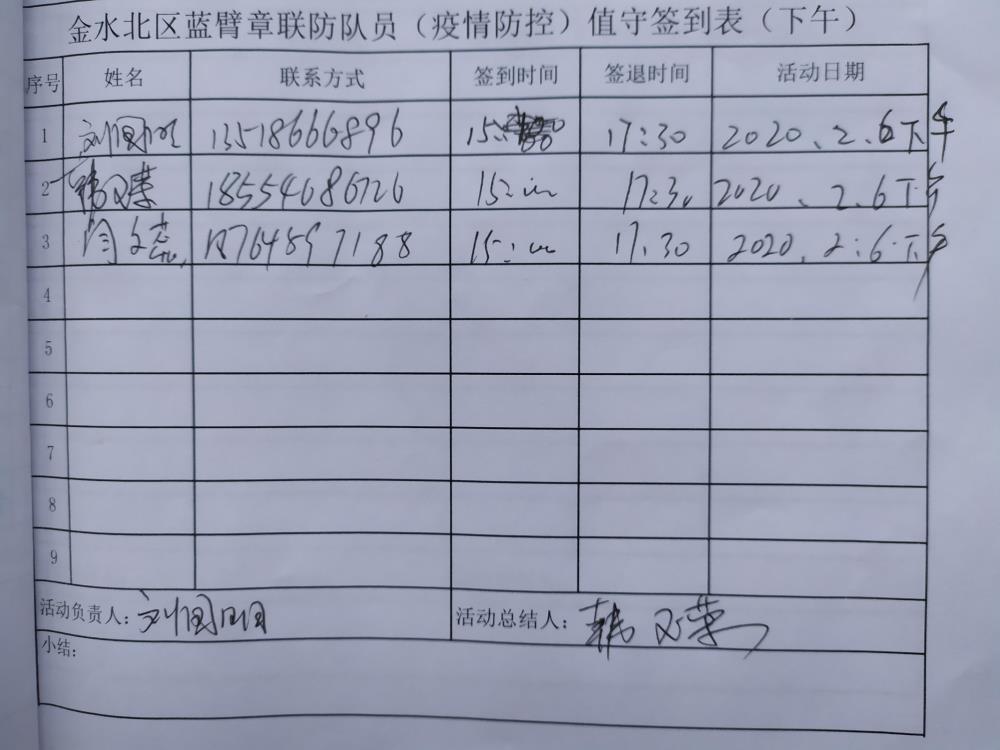 金水北区蓝臂章联防队员（疫情防控）值守签到表（下午）
序号 姓名 联系方式 签到时间 签退时间 活动日期
1 刘国明 13518666896 15: 17:30 2020、2.6下午
2 韩又荣 18554686726 15:00 17:30 2020、2.6下午
3 闫文蕊 18764897188 15:00 17:30 2020、2:6下午
4
5
6
7
8
9
活动负责人：刘国明 活动总结人：韩又荣
小结：